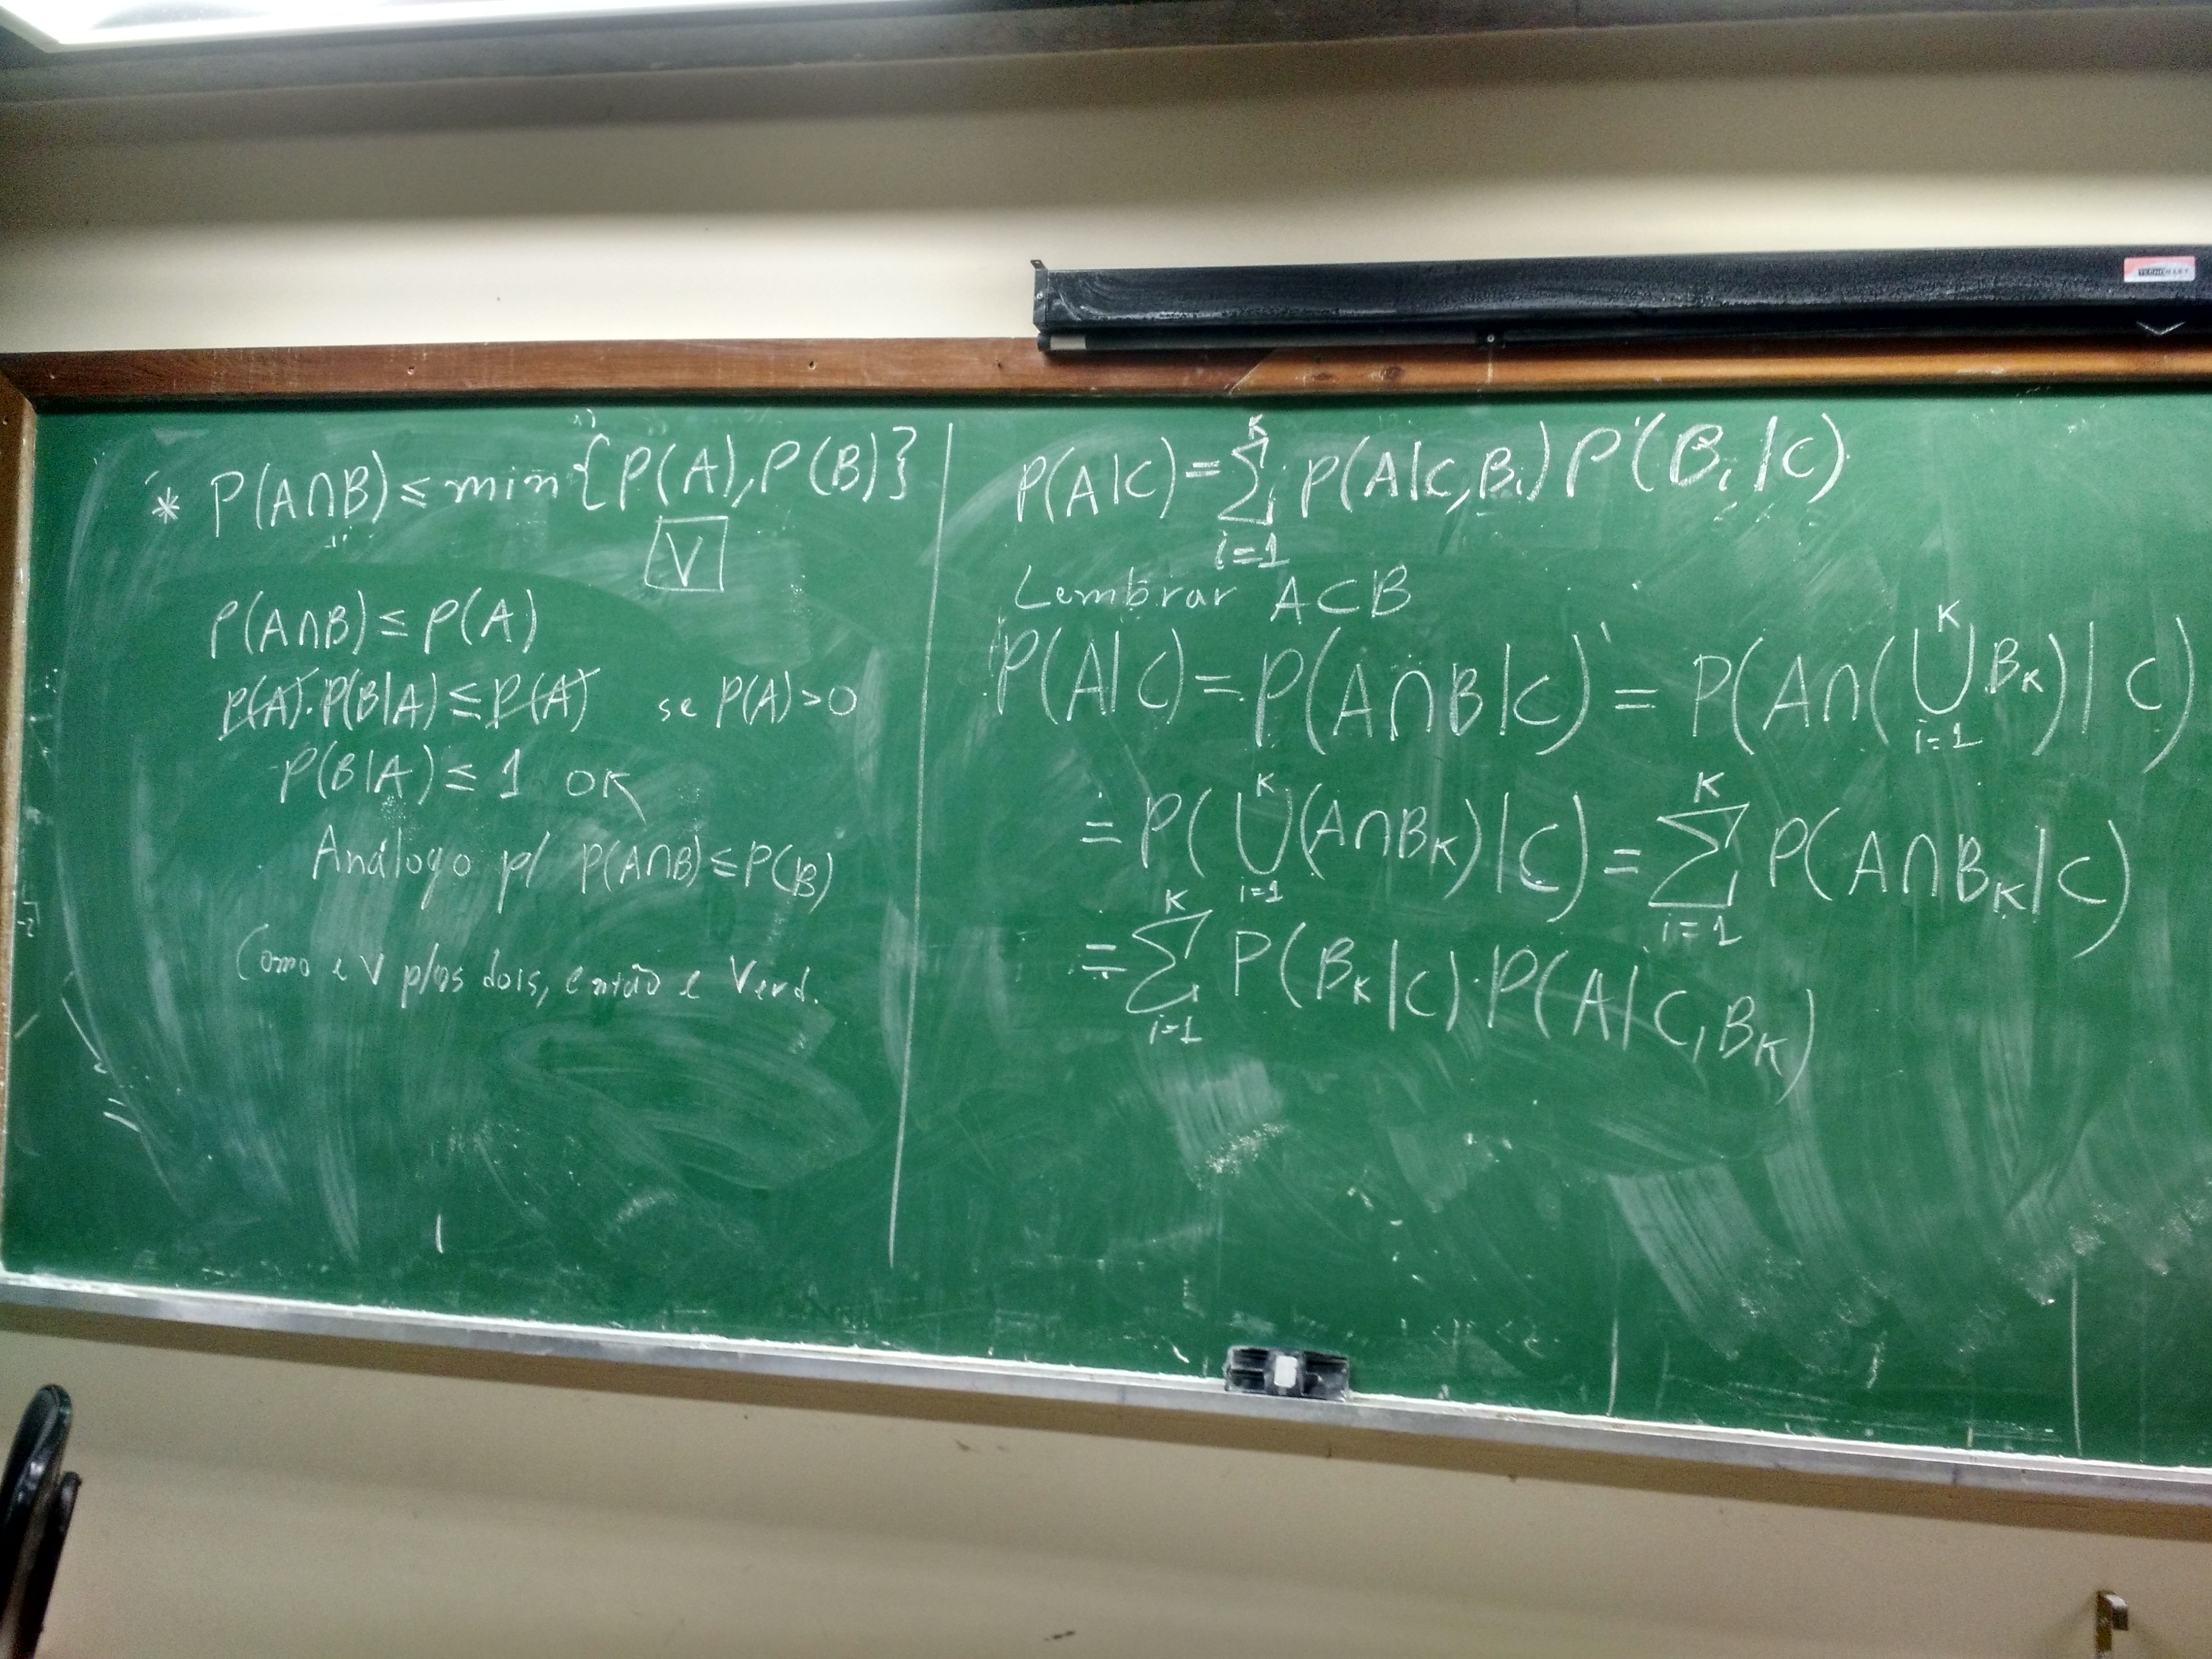 * P(A∩B) ≤ min{P(A), P(B)}
V
P(A∩B) ≤ P(A)
P(A)·P(B|A) ≤ P(A) se P(A)>0
P(B|A) ≤ 1 OK
Análogo p/ P(A∩B) ≤ P(B)
Como e V p/os dois, então e Verd.
P(A|C) = ∑_{i=1}^{K} P(A|C,B_i) P(B_i|C)
Lembrar A⊂B
P(A|C) = P(A∩B|C) = P(A∩(⋃_{i=1}^{K} B_K)|C)
= P(⋃_{i=1}^{K} (A∩B_K)|C) = ∑_{i=1}^{K} P(A∩B_K|C)
= ∑_{i=1}^{K} P(B_K|C)·P(A|C,B_K)